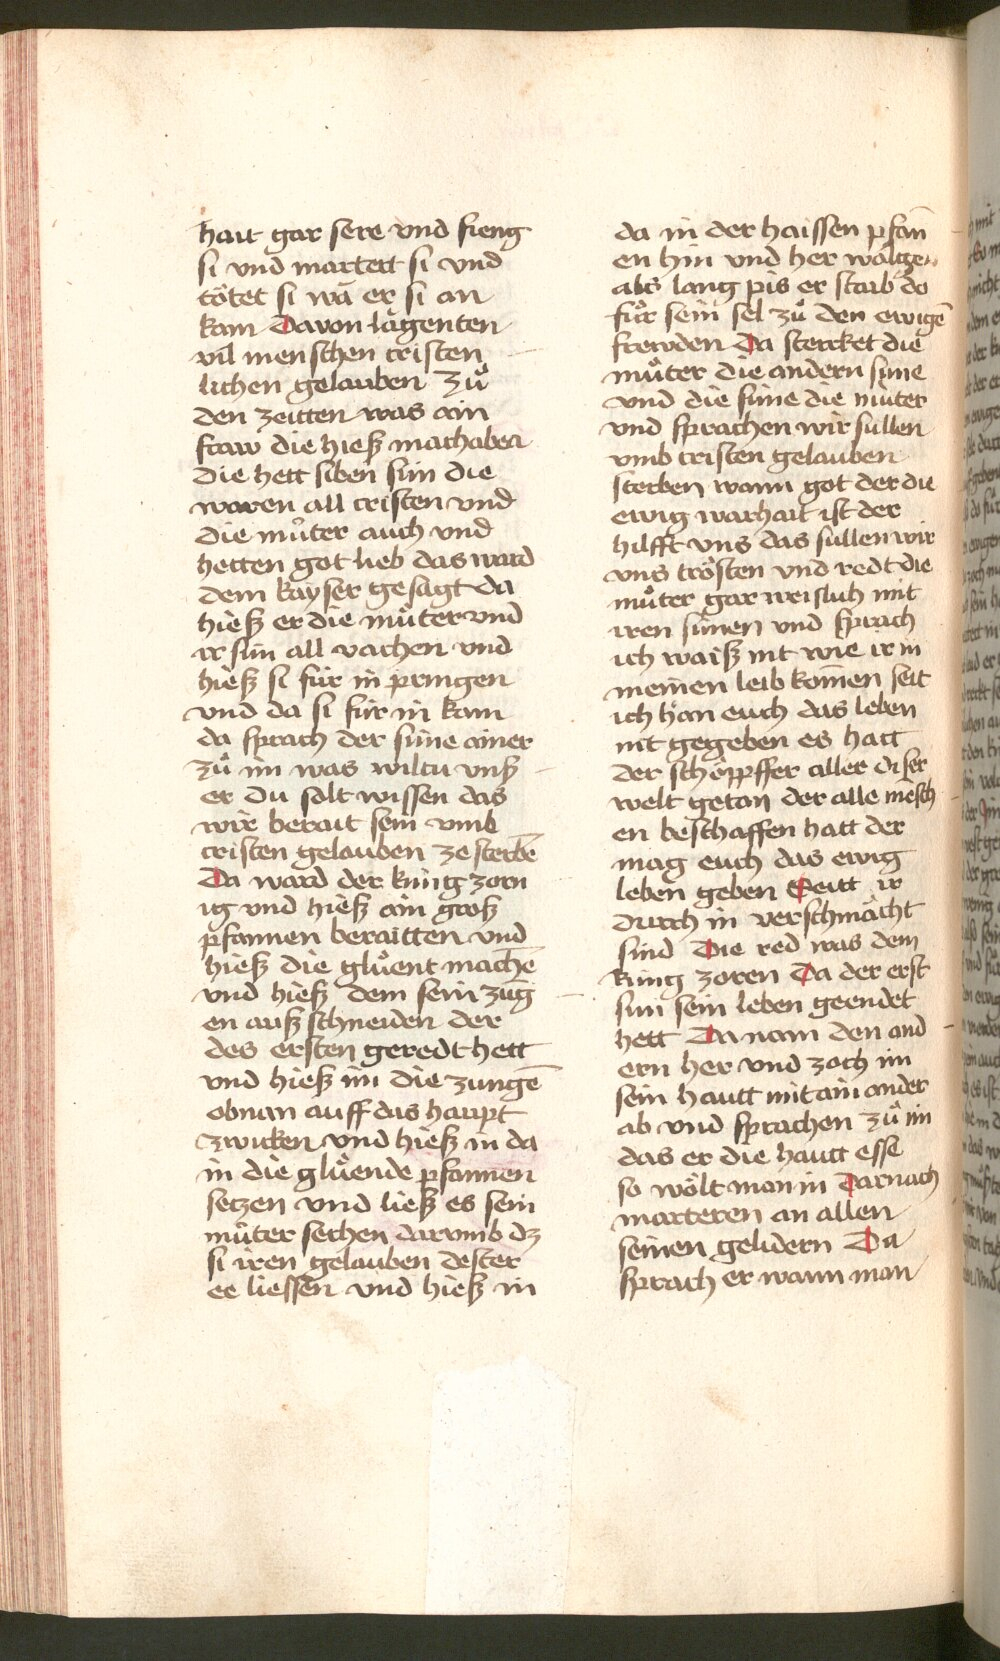 hait gar sere vnd fieng
si vnd martert si vnd
tötet si wā er si an
kam Davon lägenten
vil menschen cristen
lichen gelauben Zuͦ
den zeitten was ain
fraw die hieß machabea
die hett siben sün die
waren all cristen vnd
die muͦter auch vnd
hetten got lieb das ward
dem kayser gesagt da
hieß er die muͦter vnd
ir sün all vachen vnd
hieß si für in pringen
vnd da si für in kam
da sprach der süne ainer
zuͦ im was wiltu vnß
er du solt wissen das
wir berait sein vmb
cristen gelauben ze sterbē
Da ward der küng zorn
ig vnd hieß ain groß
pfannen beraitten vnd
hieß die gluͤent machē
vnd hieß dem sein züg
en auß schneiden der
des ersten geredt hett
vnd hieß im die zungē
obnan auff das haupt
zwicken vnd hieß in da
in die gluͤende pfannen
setzen vnd ließ es sein
muͦter sechen darvmb dz
si iren gelauben dester
ee liessen vnd hieß in
da in der haissen pfan̄
en hin vnd her walgen
als lang pis er starb do
fuͦr sein sel zuͦ den ewigē
frewden Da stercket die
muͦter die andern süne
vnd die süne die muͦter
vnd sprachen wir süllen
vmb cristen gelauben
sterben wann got der die
ewig warhait ist der
hilfft vns das süllen wir
vns trösten vnd redt die
muͦter gar weislich mit
iren sünen vnd sprach
ich waiß nit wie ir in
meinen leib komēn seit
ich han euch das leben
nit gegeben es hatt
der schöpffer aller diser
welt getan der alle mēsch
en beschaffen hatt der
mag euch das ewig
leben geben Seitt ir
durch in verschmächt
sind Die red was dem
küng zoren Da der erst
sun sein leben geendet
hett Da nam den and
ern her vnd zoch im
sein hautt mit ain ander
ab vnd sprachen zuͦ im
das er die hautt esse
so wölt man in Darnach
marteren an allen
seinen gelidern Da
sprach er wann man